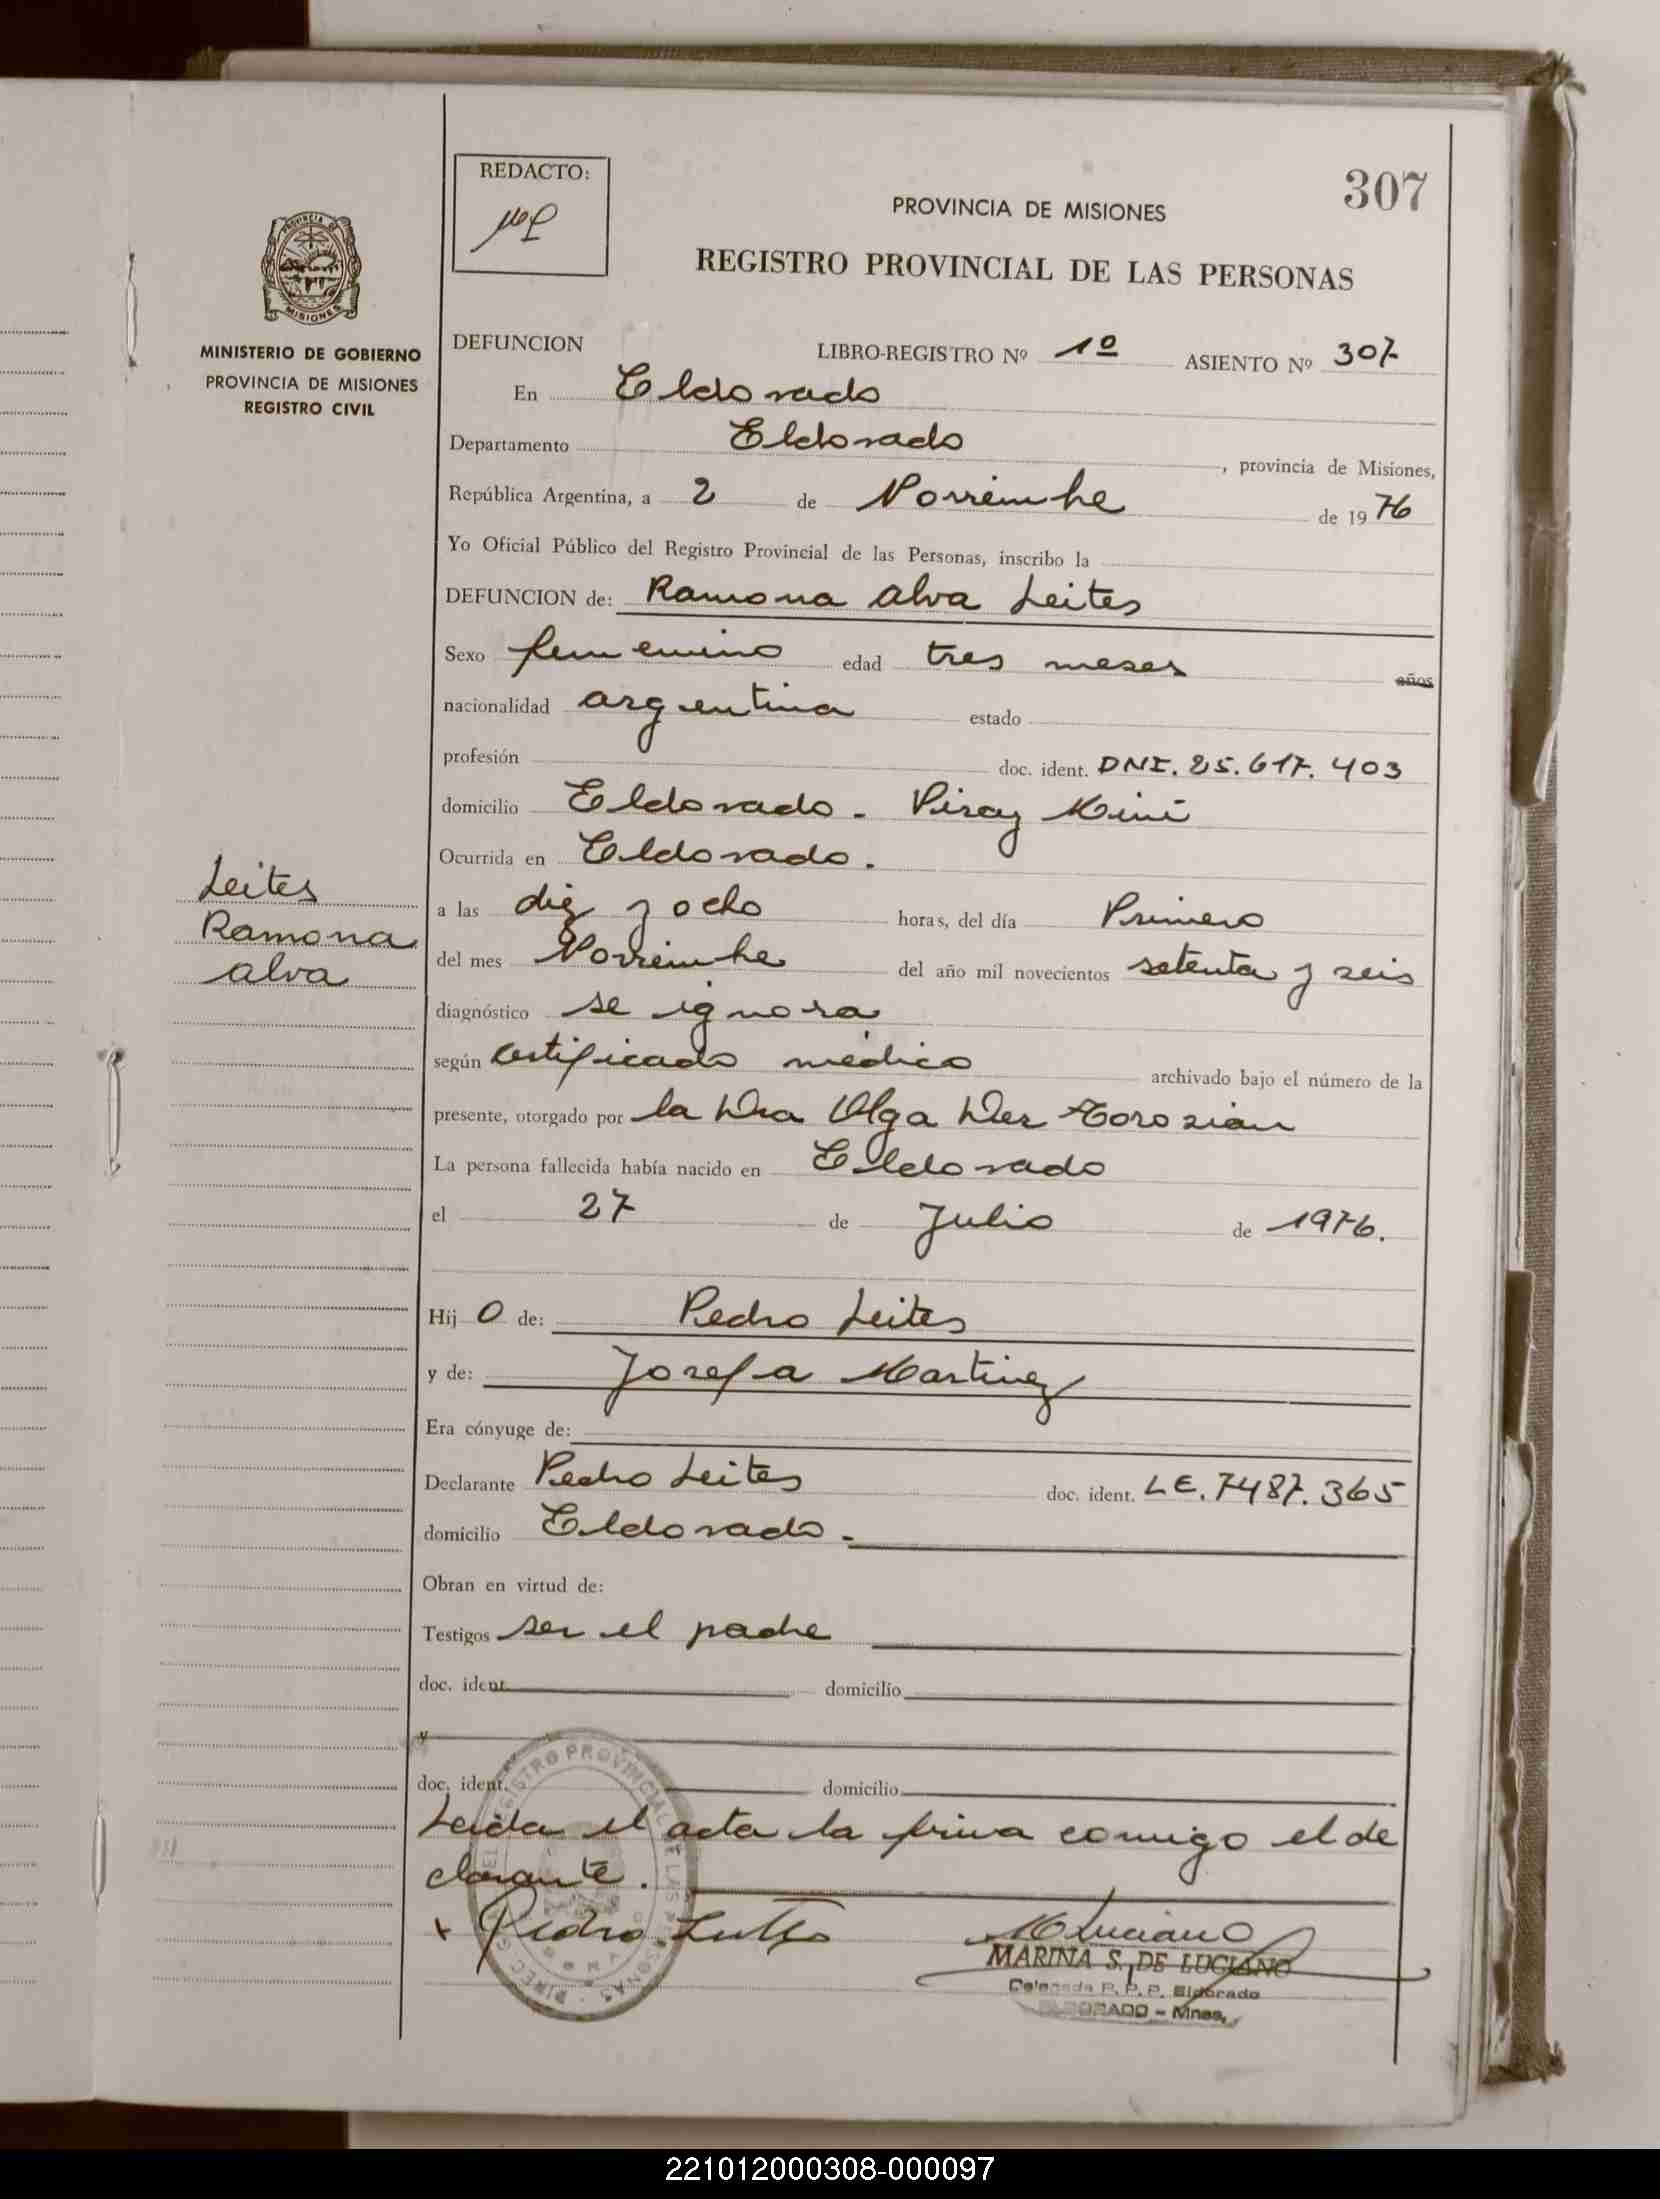 REDACTO:
307
PROVINCIA DE MISIONES
REGISTRO PROVINCIAL DE LAS PERSONAS
PROVINCIA DE
MISIONES
MINISTERIO DE GOBIERNO
PROVINCIA DE MISIONES
REGISTRO CIVIL
DEFUNCION LIBRO-REGISTRO Nº 1º ASIENTO Nº 307
En Eldorado
Departamento Eldorado, provincia de Misiones,
República Argentina, a 2 de Noviembre de 1976
Yo Oficial Público del Registro Provincial de las Personas, inscribo la
DEFUNCION de: Ramona Alva Leites
Sexo femenino edad tres meses años
nacionalidad argentina estado
profesión doc. ident. DNI. 25.617.403
domicilio Eldorado - Piray Miní
Ocurrida en Eldorado.
Leites
Ramona
Alva
a las diez y ocho horas, del día Primero
del mes Noviembre del año mil novecientos setenta y seis
diagnóstico se ignora
según certificado médico archivado bajo el número de la
presente, otorgado por la Dra Olga Der Torosian
La persona fallecida había nacido en Eldorado
el 27 de Julio de 1976.
Hij o de: Pedro Leites
y de: Josefa Martinez
Era cónyuge de:
Declarante Pedro Leites doc. ident. LE. 7487.365
domicilio Eldorado.
Obran en virtud de:
Testigos ser el padre
doc. ident. domicilio
y
doc. ident. domicilio
Leida el acta la firma conmigo el de
clarante.
x Pedro Leites MLuciano
MARINA S. DE LUCIANO
Delegada R. P. P. Eldorado
ELDORADO - Mnes.
221012000308-000097